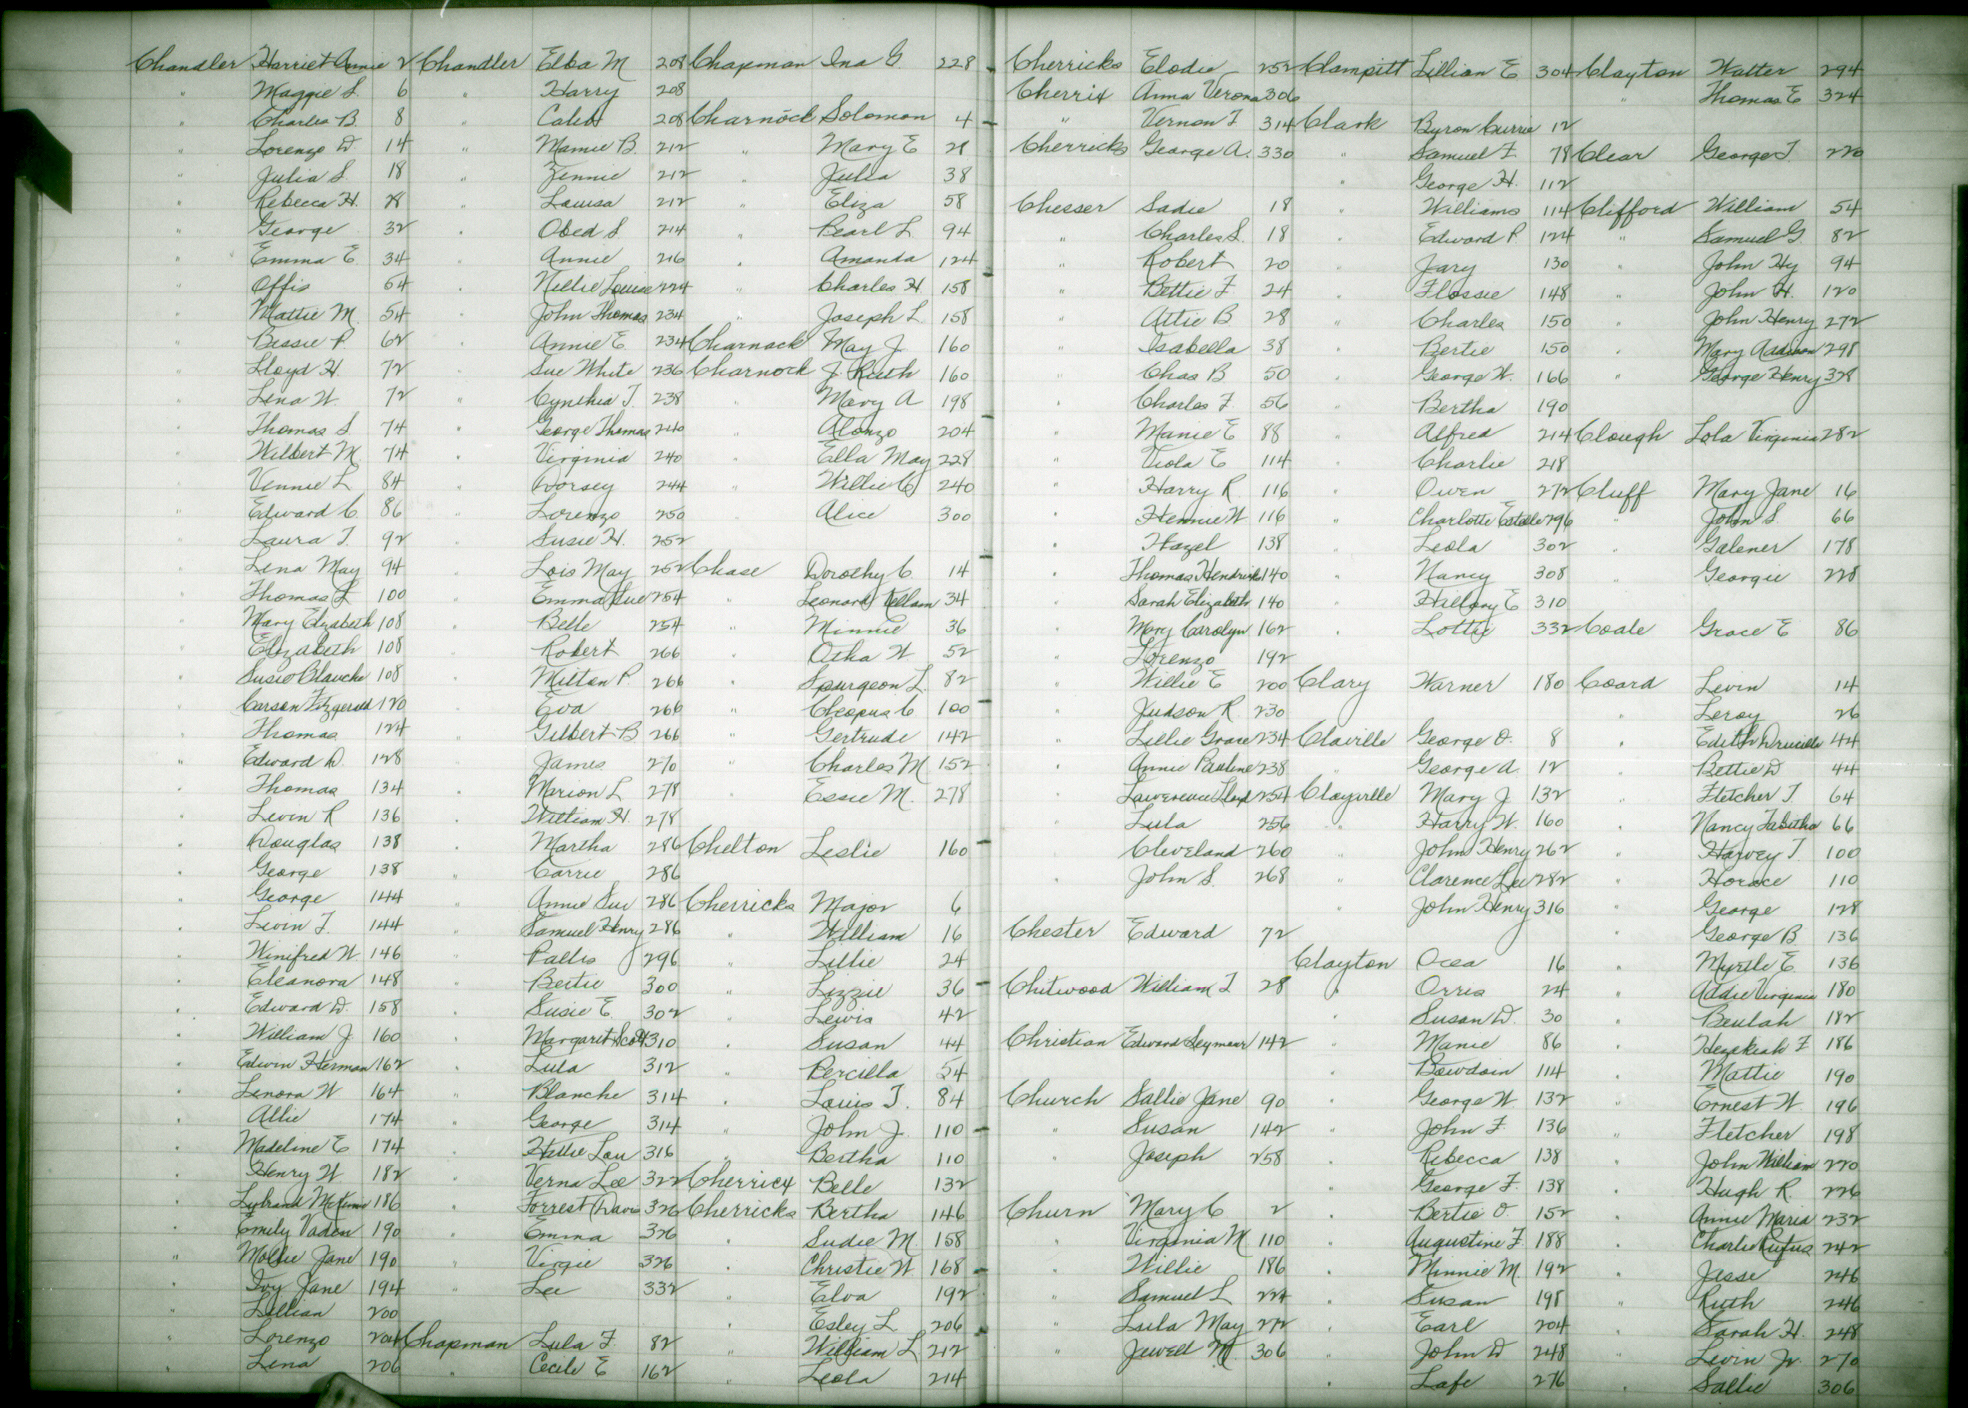 Chandler Harriet Annie 2
" Maggie S. 6
" Charles B 8
" Lorenzo D 14
" Julia S 18
" Rebecca H. 28
" George 32
" Emma E. 34
" Offis 54
" Mattie M. 54
" Bessie P. 62
" Lloyd H 72
" Lena W 72
" Thomas S 74
" Wilbert M 74
" Vennie L 84
" Edward C. 86
" Laura T. 92
" Lena May 94
" Thomas L 100
" Mary Elizabeth 108
" Elizabeth 108
" Susie Blanche 108
" Carson Fitzgerald 120
" Thomas 124
" Edward D. 128
" Thomas 134
" Levin R 136
" Douglas 138
" George 138
" George 144
" Levin T. 144
" Winifred W 146
" Eleanora 148
" Edward D. 158
" William J. 160
" Edwin Herman 162
" Lenora W 164
" Allie 174
" Madeline E 174
" Henry W 182
" 186
" Emily Vaden 190
" Mollie Jane 190
" Ivy Jane 194
" Lillian 200
" Lorenzo 204
" Lena 206
Chandler Elba M 208
" Harry 208
" Caleb 208
" Mamie B. 212
" Zennie 212
" Louisa 212
" Obed S 214
" Annie 216
" Nellie Louise 224
" John Thomas 234
" Annie E 234
" Sue White 236
" Cynthia T. 238
" George Thomas 240
" Virginia 240
" Dorsey 244
" Lorenzo 250
" Susie H. 252
" Lois May 252
" Emma Sue 254
" Belle 254
" Robert 266
" Milton P. 266
" Eva 266
" Gilbert B 266
" James 270
" Marion L 278
" William H. 278
" Martha 286
" Carrie 286
" Annie Sue 286
" Samuel Henry 286
" 296
" Bertie 300
" Susie E. 302
" Margaret Scott 310
" Lula 312
" Blanche 314
" George 314
" Hattie Lou 316
" Verna Lee 322
" Forrest Davis 326
" Emma 326
" Virgie 326
" Lee 332
Chapman Lula F 82
" Cecile E 162
Chapman Ina G 228
Charnock Solomon 4
" Mary E 28
" Julia 38
" Eliza 58
" Pearl L 94
" Amanda 124
" Charles H 158
" Joseph L 158
Charnack May J 160
Charnock J. Ruth 160
" Mary A 198
" Alonzo 204
" Ella May 228
" Willie C 240
" Alice 300
Chase Dorothy C. 14
" Leonard Kellam 34
" Minnie 36
" Otha W 52
" Spurgeon L. 82
" Cleopus C 100
" Gertrude 142
" Charles M 152
" Essie M. 278
Chelton Leslie 160
Cherricks Major 6
" William 16
" Lillie 24
" Lizzie 36
" Lewis 42
" Susan 44
" Percilla 54
" Louis T. 84
" John J. 110
" Bertha 110
Cherrick Belle 132
Cherricks Bertha 146
" Sudie M. 158
" Christie W. 168
" Elva 192
" Esley L 206
" William L 212
" Leola 214
Cherricks Elodie 252
Cherrix Anna Verona 306
" Vernon T 314
Cherricks George A. 330
Chesser Sadie 18
" Charles S. 18
" Robert 20
" Bettie F 24
" Attie B 28
" Isabella 38
" Chas B 50
" Charles F. 56
" Manie E 88
" Viola E 114
" Harry R. 116
" Hennie W 116
" Hazel 138
" Thomas Hendricks 140
" Sarah Elizabeth 140
" Mary Carolyn 162
" Lorenzo 192
" Willie E 200
" Judson R. 230
" Lillie Grace 234
" Annie Pauline 238
" Lawerence Lloyd 254
" Lula 256
" Cleveland 260
" John S. 268
Chester Edward 72
Chitwood William T 28
Christian Edward Seymour 142
Church Sallie Jane 90
" Susan 142
" Joseph 258
Churn Mary C 2
" Virginia M 110
" Willie 186
" Samuel L 224
" Lula May 272
" Jewell M 306
Clampitt Lillian E 304
Clark Byron Currie 12
" Samuel F. 78
" George H. 112
" Williams 114
" Edward P. 124
" Jary 130
" Flossie 148
" Charles 150
" Bertie 150
" George W. 166
" Bertha 190
" Alfred 214
" Charlie 218
" Owen 272
" Charlotte Estelle 296
" Leola 302
" Nancy 308
" Hillary E 310
" Lottie 332
Clary Warner 180
Claville George O. 8
" George A. 12
Clayville Mary J 132
" Harry W. 160
" John Henry 262
" Clarence Lee 282
" John Henry 316
Clayton Ocea 16
" Orris 24
" Susan D. 30
" Manie 86
" Bowdoin 114
" George W. 132
" John F. 136
" Rebecca 138
" George F. 138
" Bertie O. 152
" Augustine F 188
" Minnie M. 192
" Susan 198
" Earl 204
" John D 248
" Lafe 276
Clayton Walter 294
" Thomas E 324
Clear George T. 220
Clifford William 54
" Samuel G. 82
" John Hy 94
" John H. 120
" John Henry 272
" Mary Addison 298
" George Henry 328
Clough Lola Virginia 282
Cluff Mary Jane 16
" John S. 66
" Galener 178
" Georgie 228
Coale Grace E 86
Coard Levin 14
" Leroy 26
" Edith Drucilla 44
" Bettie D 44
" Fletcher T. 64
" Nancy Tabitha 66
" Harvey T. 100
" Horace 110
" George 128
" George B. 136
" Myrtle E. 136
" Addie Virginia 180
" Beulah 182
" Hezekiah F 186
" Mattie 190
" Ernest W. 196
" Fletcher 198
" John William 220
" Hugh R. 226
" Annie Maria 232
" Charlie Rufus 242
" Jesse 246
" Ruth 246
" Sarah H. 248
" Levin Jr. 270
" Sallie 306